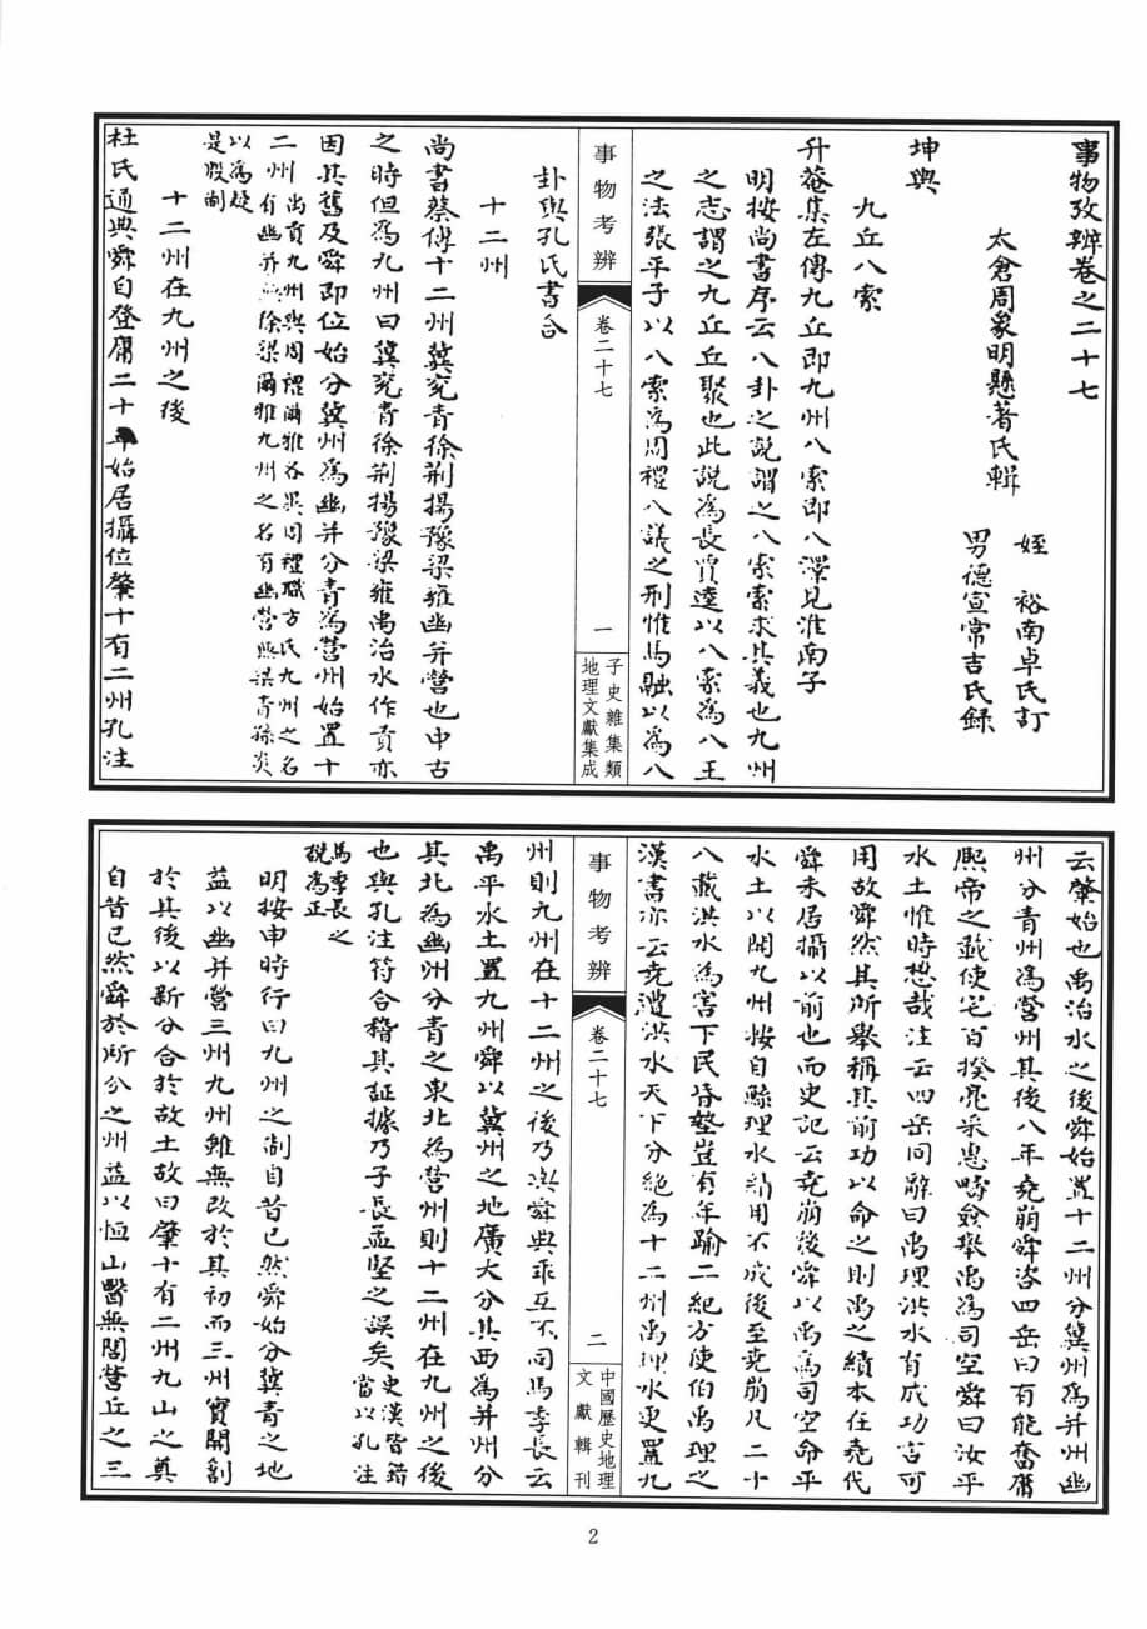 事物攷辨卷之二十七
太倉周象明懸著氏輯
姪 裕南卓氏訂
男德宣常吉氏錄
坤輿
九丘八索
升菴集左傳九丘即九州八索即八澤見淮南子
明按尚書序云八卦之說謂之八索索求其義也九州
之志謂之九丘丘聚也此說為長賈逵以八索為八王
之法張平子以八索為周禮八議之刑惟馬融以為八
事物考辨
卷二十七
一
子史雜集類
地理文獻集成
卦與孔氏書合
十二州
尚書蔡傳十二州冀兖青徐荆揚豫梁雍幽并營也中古
之時但為九州曰冀兖青徐荆揚豫梁雍禹治水作貢亦
因其舊及舜即位始分冀州為幽并分青為營州始置十
二州
禹貢九州與周禮爾雅各異周禮職方氏九州之名
有幽并無徐梁爾雅九州之名有幽營無梁青孫炎
以為疑
是殷制
十二州在九州之後
杜氏通典舜自登庸二十年始居攝位肇十有二州孔注
云肇始也禹治水之後舜始置十二州分冀州為并州幽
州分青州為營州其後八年堯崩舜咨四岳曰有能奮庸
熈帝之載使宅百揆亮采惠疇僉舉禹為司空舜曰汝平
水土惟時懋哉注云四岳同辭曰禹理洪水有成功言可
用故舜然其所舉稱其前功以命之則禹之績本在堯代
舜未居攝以前也而史記云堯崩後舜以禹為司空命平
水土以開九州按自鯀理水績用不成後至堯崩凡二十
八載洪水為害下民昏墊豈有年踰二紀方使伯禹理之
漢書亦云堯遭洪水天下分絶為十二州禹理水更置九
事物考辨
卷二十七
二
中國歷史地理
文獻輯刊
州則九州在十二州之後乃與舜典乖互不同馬季長云
禹平水土置九州舜以冀州之地廣大分其西為并州分
其北為幽州分青之東北為營州則十二州在九州之後
也與孔注符合稽其証據乃子長孟堅之誤矣
史漢皆錯
當以孔注
馬季長之
說為正
明按申時行曰九州之制自昔已然舜始分冀青之地
益以幽并營三州九州雖無改於其初而三州實開創
於其後以新分合於故土故曰肇十有二州九山之奠
自昔已然舜於所分之州益以恒山醫無閭營丘之三
2